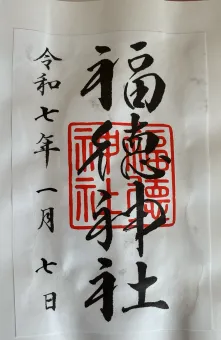 福徳神社
福徳神社
令和七年 一月 七日